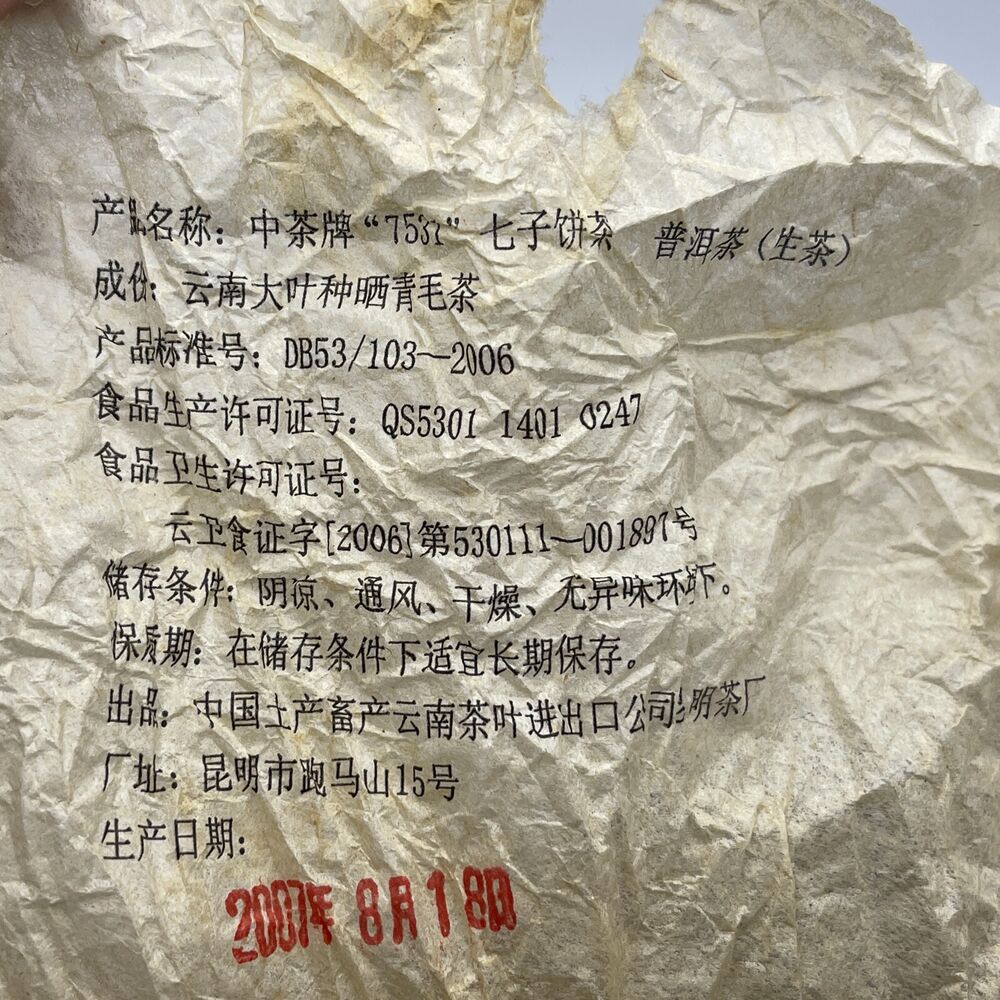 产品名称：中茶牌“7531”七子饼茶 普洱茶（生茶）
成份：云南大叶种晒青毛茶
产品标准号：DB53/103—2006
食品生产许可证号：QS5301 1401 0247
食品卫生许可证号：
云卫食证字[2006]第530111—001897号
储存条件：阴凉、通风、干燥、无异味环境下。
保质期：在储存条件下适宜长期保存。
出品：中国土产畜产云南茶叶进出口公司昆明茶厂
厂址：昆明市跑马山15号
生产日期：
2007年8月18日